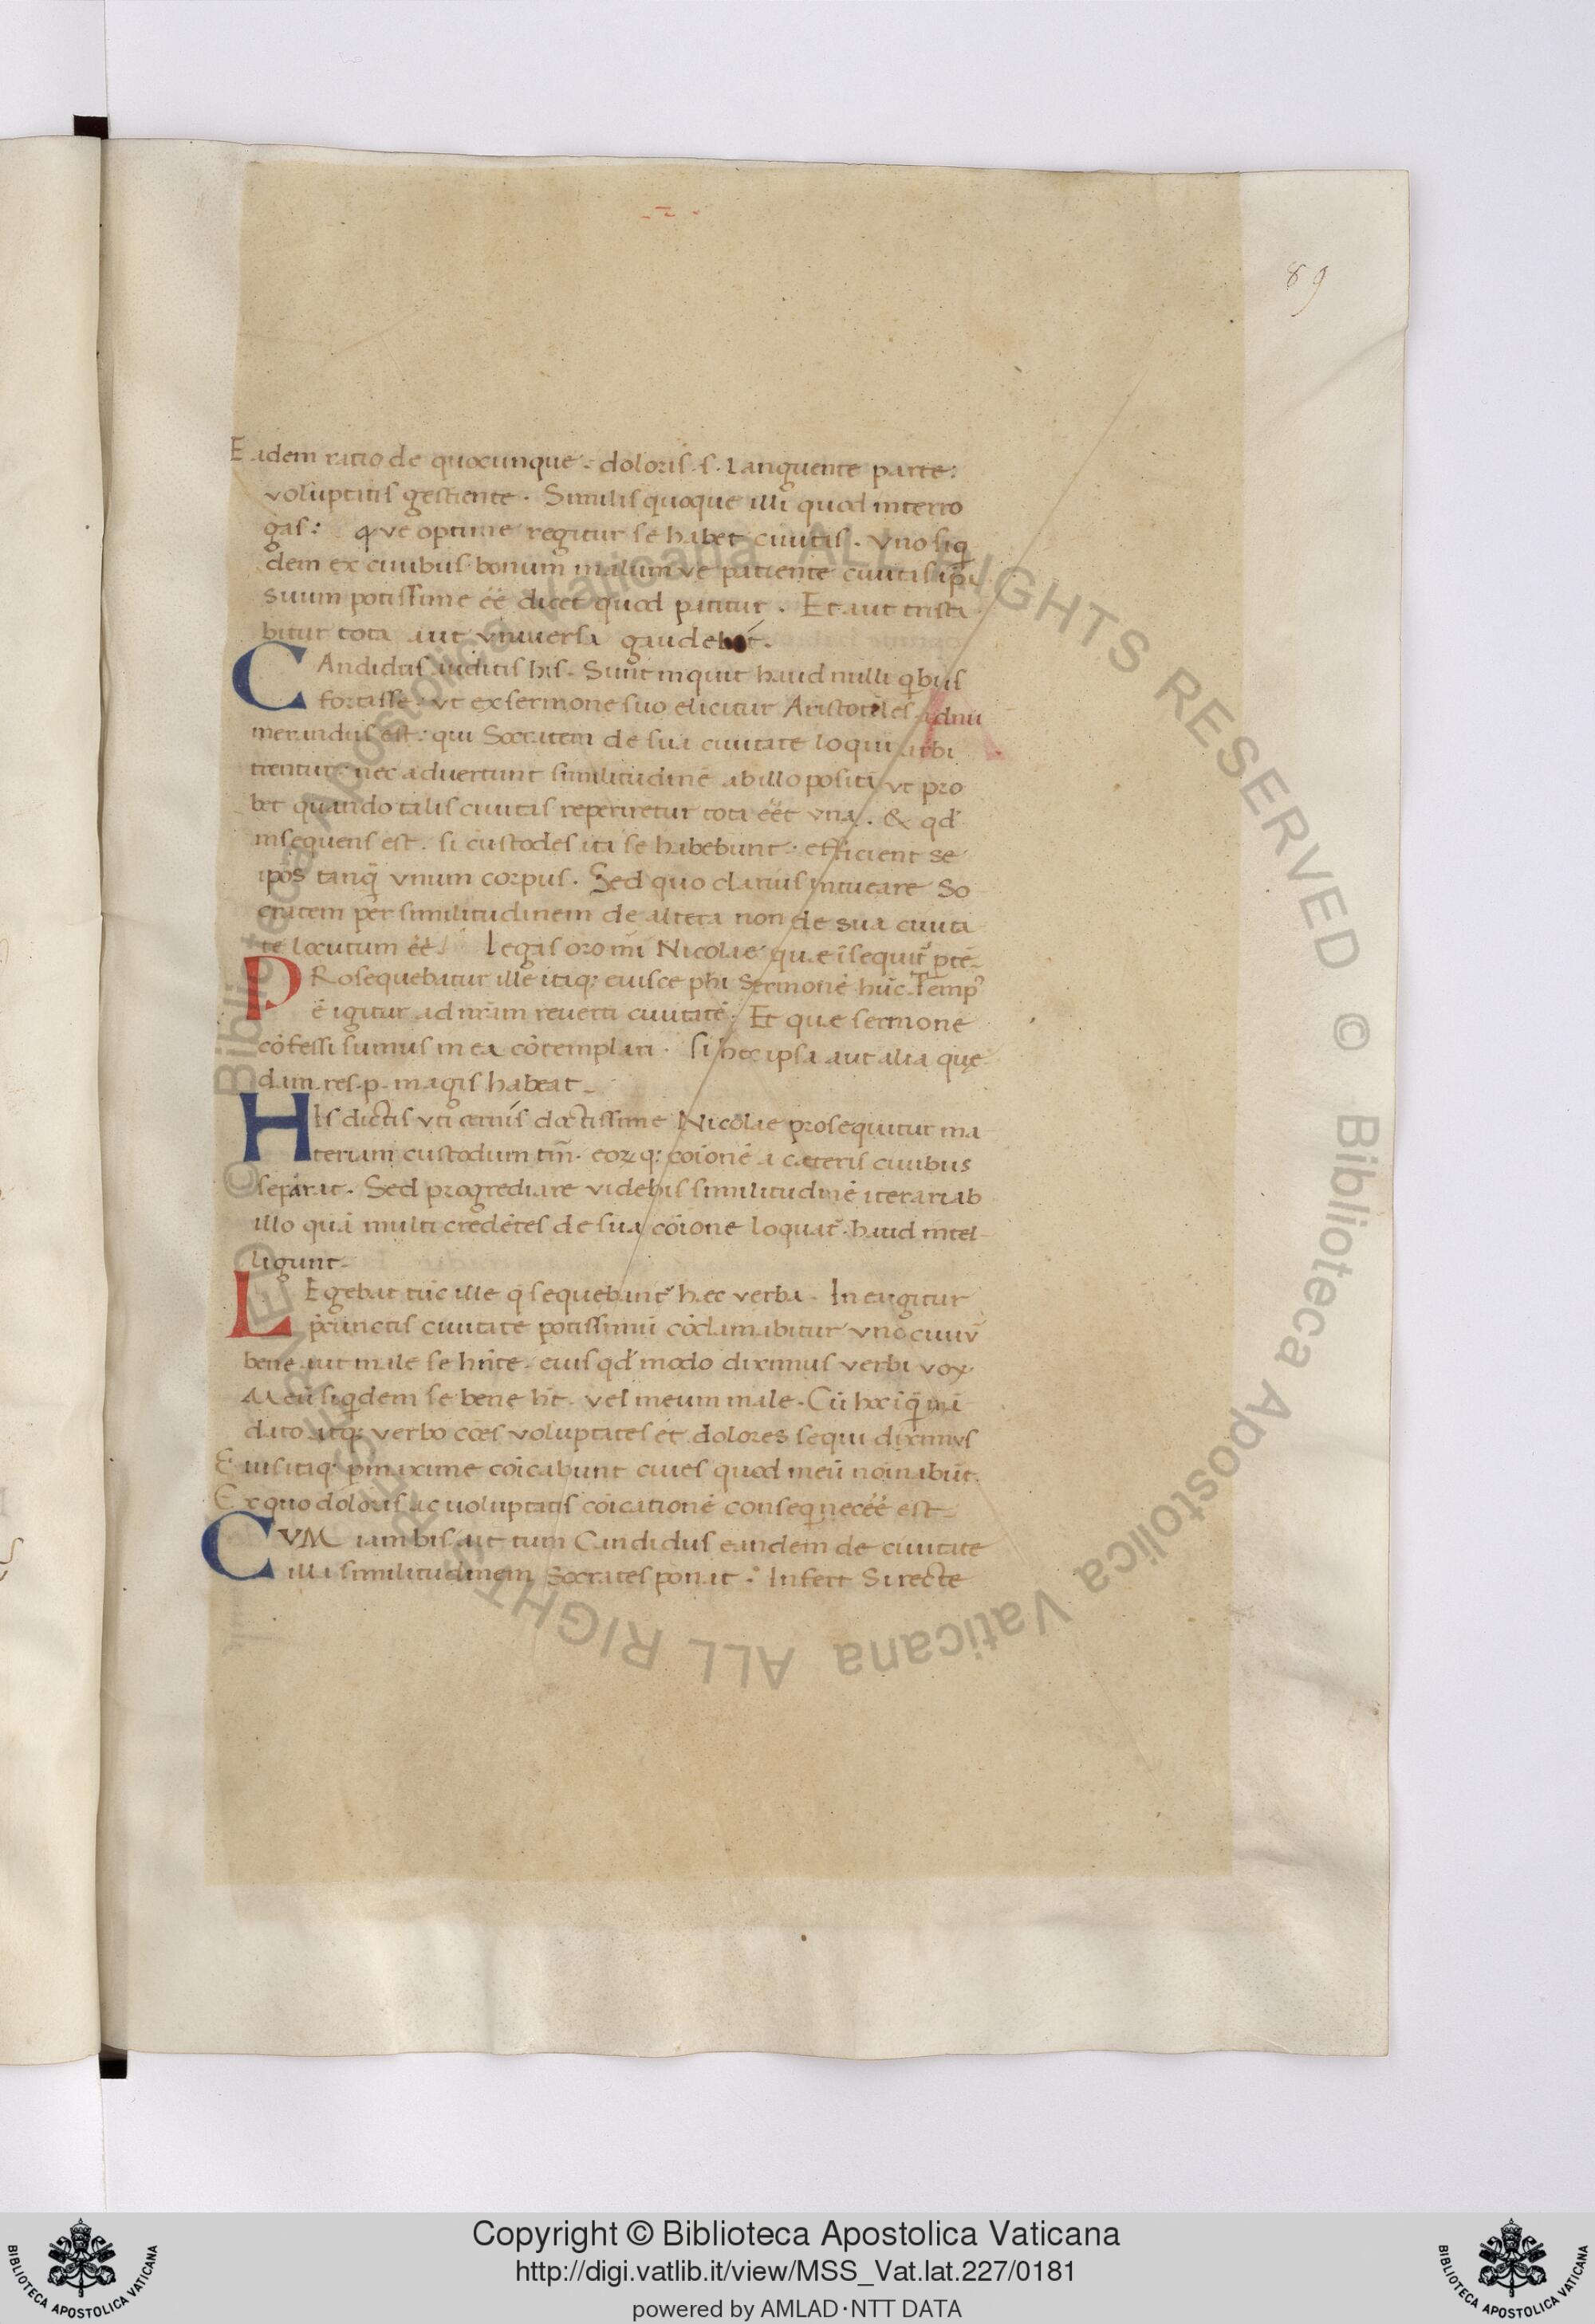 89
Eadem ratio de quocunque: doloris .s. languente parte:
voluptatis gestiente. Similis quoque illi quod interro
gas: que optime regitur se habet ciuitas. vno siq̇
dem ex ciuibus bonum malum ve patiente ciuitas ip̄a
suum potissime eē dicet quod patitur. Et aut trista
bitur tota aut vniuersa gaudebit.
CAndidus auditis his. Sunt inquit haud nulli qbus
fortasse: vt ex sermone suo elicitur Aristotiles adnu
merandus est: qui Socratem de sua ciuitate loqui arbi
trentur: nec aduertunt similitudinē ab illo positā vt pro
bet quando talis ciuitas reperiretur tota eēt vna. & qd'
insequens est. si custodes ita se habebunt: efficient se
ipōs tanq̄ vnum corpus. Sed quo clarius intueare So
cratem per similitudinem de altera non de sua ciuita
te locutum eē. Legas oro mi Nicolae quae īsequit̄
PRosequebatur ille itaq; eiusce phi sermonē hūc. Temp9
ē igitur ad nrām reuerti ciuitatē. Et quae sermone
cōfessi sumus in ea cōtemplari. si hec ipsa aut alia quę
dam res.p. magis habeat
HIs dictis vti ceruis doctissime Nicolae prosequitur ma
teriam custodum tm̄. eorūq; coīonē a caeteris ciuibus
separat. Sed progrediare videbis similitudinē iterari ab
illo quā multi credētes de sua coīone loquat̄. haud intel
ligunt
LEgebat tūc ille q̄ sequebant̄ haec verba. In ea igitur
p̄cunctis ciuitate potissimū cōclamabitur vno ciuiū
bene aut male se hn̄te. eius qd' modo diximus verbi vox.
Meū siq̇dem se bene ht̄. vel meum male. Cū hoc īq̄
dato atq; verbo coēs voluptates et dolores sequi diximus
Eius itaq; p maxime coīcabunt ciues quod meū noīabūt.
Ex quo doloris ac uoluptatis coīcationē conseq̇ necēē est
CVM iam bis ait tum Candidus eandem de ciuitate
illa similitudinem Socrates ponat: Infert Si recte
© Biblioteca Apostolica Vaticana ALL RIGHTS RESERVED © Biblioteca Apostolica Vaticana ALL RIGHTS RESERVED
Copyright © Biblioteca Apostolica Vaticana
http://digi.vatlib.it/view/MSS_Vat.lat.227/0181
powered by AMLAD·NTT DATA
BIBLIOTECA APOSTOLICA VATICANA
BIBLIOTECA APOSTOLICA VATICANA